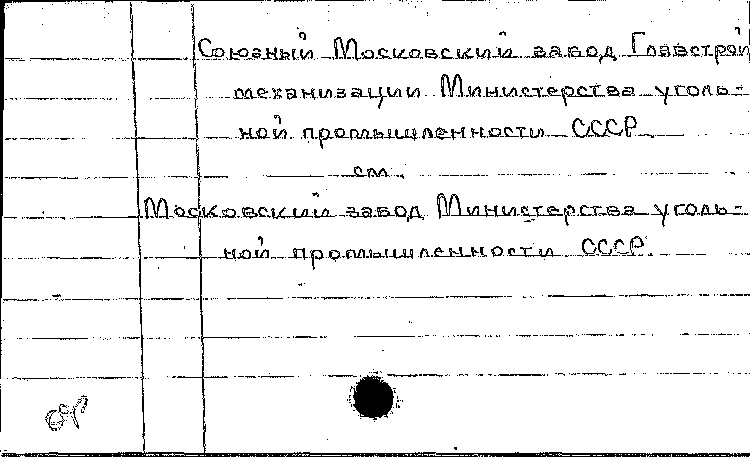 Союзный Московский завод Главстрой
механизации Министерства уголь-
ной промышленности СССР
см.
Московский завод Министерства уголь-
ной промышленности СССР.